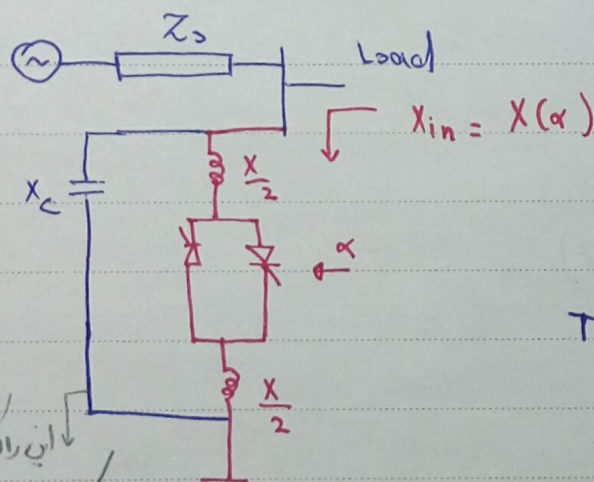 Z₀
Load
X_in = X(α)
X/2
X_c
α
T
X/2
این را